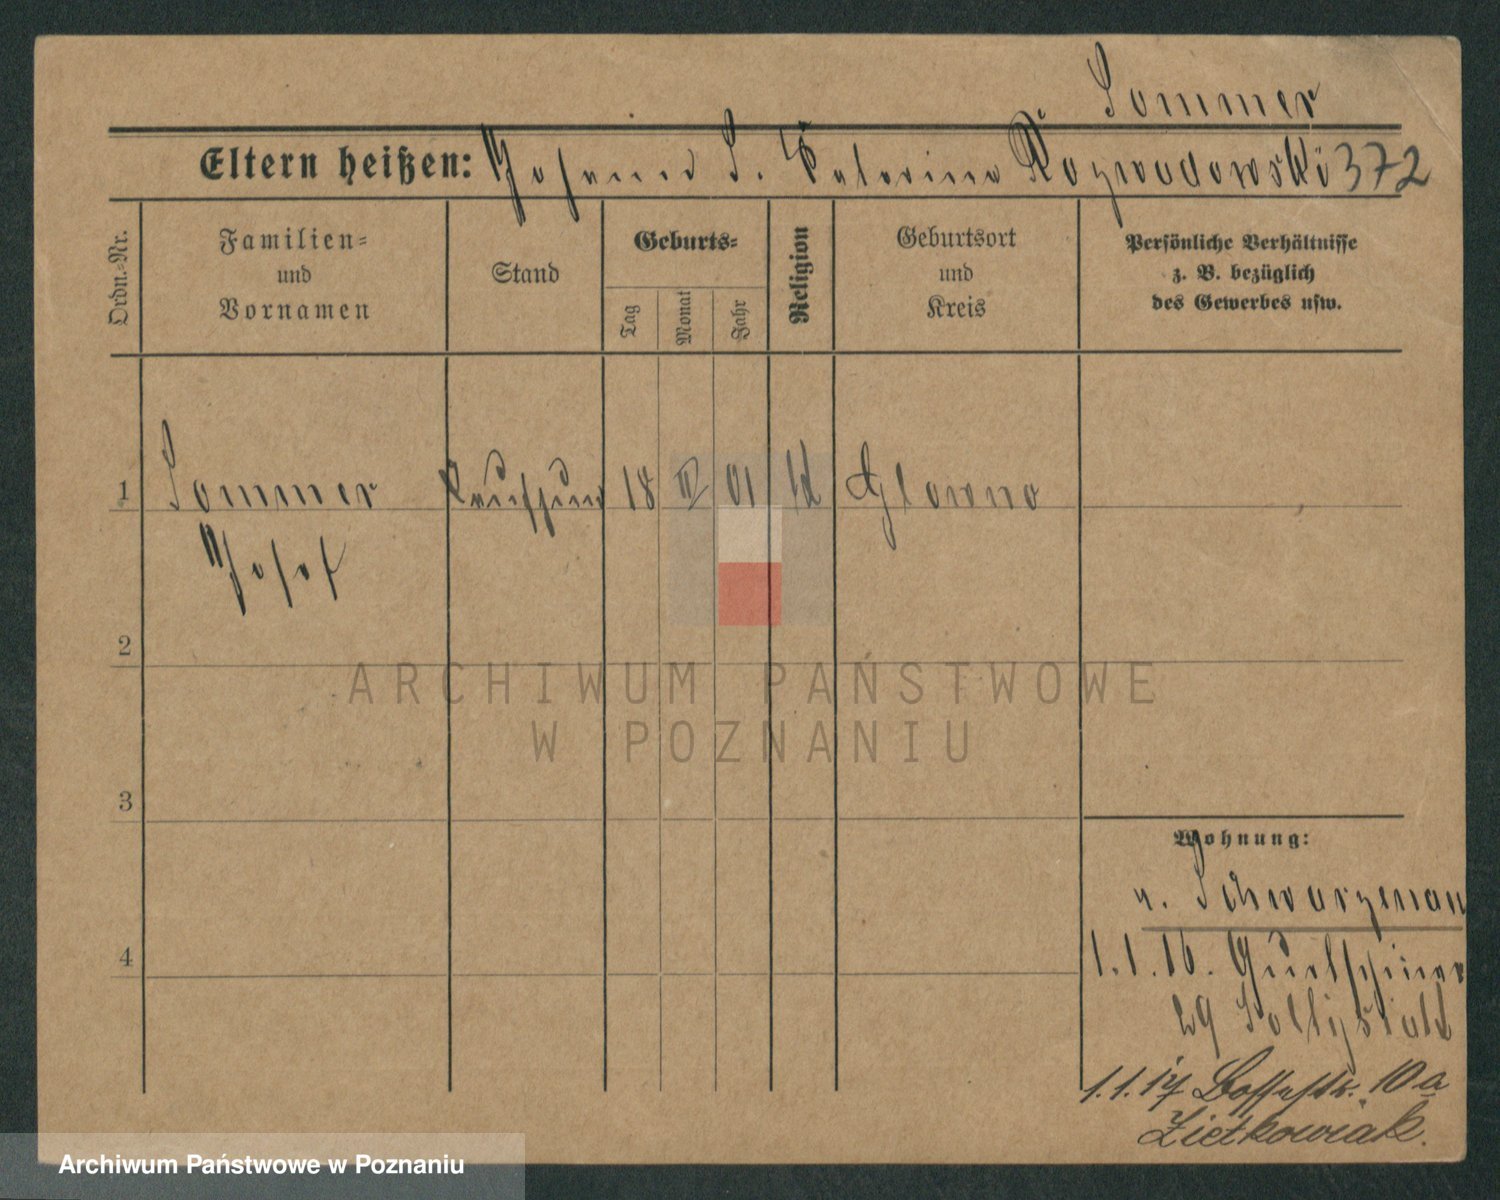 Sommer
Eltern heißen: Johann S. Katarina Rozwadowski 372
Ordn.=Nr.
Familien=
und
Vornamen
Stand
Geburts=
Tag
Monat
Jahr
Religion
Geburtsort
und
Kreis
Persönliche Verhältnisse
z. B. bezüglich
des Gewerbes usw.
1 Sommer 18 01 Glowno
Josef
2
3
4
Wohnung:
v. Schwarzenau
1.1.16.
29
1.1.17 10a
Zietkowiak.
ARCHIWUM PAŃSTWOWE
W POZNANIU
Archiwum Państwowe w Poznaniu